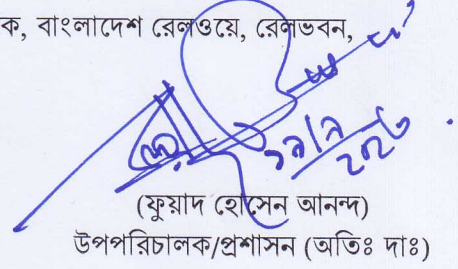 ক, বাংলাদেশ রেলওয়ে, রেলভবন,
২০২৩
(ফুয়াদ হোসেন আনন্দ)
উপপরিচালক/প্রশাসন (অতিঃ দাঃ)